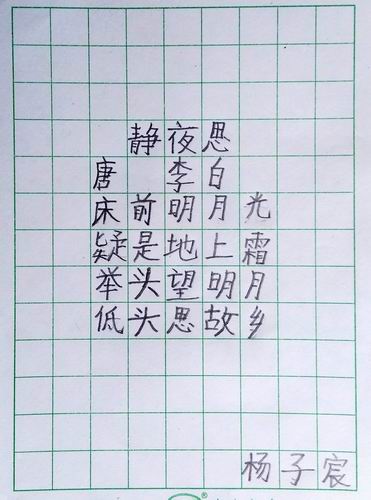 静夜思
唐 李白
床前明月光
疑是地上霜
举头望明月
低头思故乡
杨子宸
®